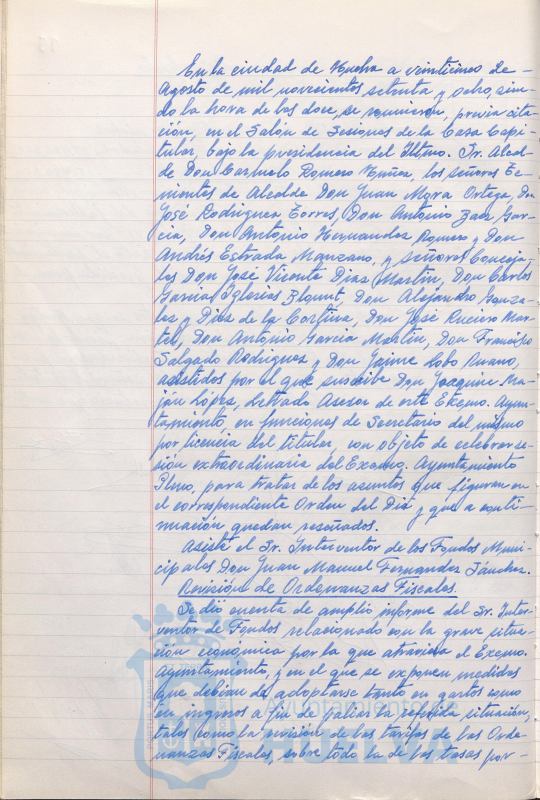 En la ciudad de Huelva a veinticinco de
Agosto de mil novecientos setenta y ocho, sien-
do la hora de las doce, se reunieron, previa cita-
ción, en el Salón de Sesiones de la Casa Capi-
tular, bajo la presidencia del Iltmo. Sr. Alcal-
de Don Carmelo Romero Núñez, los señores Te-
nientes de Alcalde Don Juan Mora Ortega, Don
José Rodríguez Torres, Don Antonio Gar-
cía, Don Antonio Hernandez Romero y Don
Andrés Estrada Manzano, y señores Conceja-
les Don José Vicente Diaz Martín, Don Carlos
García Iglesias Blount, Don Alejandro Gonza-
lez y Diaz de la Cortina, Don José Rueiro Mar-
tel, Don Antonio García Martín, Don Francisco
Salgado Rodriguez y Don Jaime Lobo Ruano,
asistidos por el que suscribe Don Joaquin Ma-
ján López, Letrado Asesor de este Excmo. Ayun-
tamiento, en funciones de Secretario del mismo
por licencia del titular, con objeto de celebrar se-
sión extraordinaria del Excmo. Ayuntamiento
Pleno, para tratar de los asuntos que figuran en
el correspondiente Orden del Día y que a conti-
nuación quedan reseñados.
Asiste el Sr. Interventor de los Fondos Muni-
cipales Don Juan Manuel Fernandez Sánchez.
Revisión de Ordenanzas Fiscales.
Se dió cuenta de amplio informe del Sr. Inter-
ventor de Fondos relacionado con la grave situa-
ción económica por la que atraviesa el Excmo.
Ayuntamiento, y en el que se exponen medidas
que debían de adoptarse tanto en gastos como
en ingresos a fin de paliar la referida situación,
tales como la revisión de las tarifas de las Orde-
nanzas Fiscales, sobre todo la de las tasas por-
PORTUS MARIS
Ayuntamiento de
HUELVA